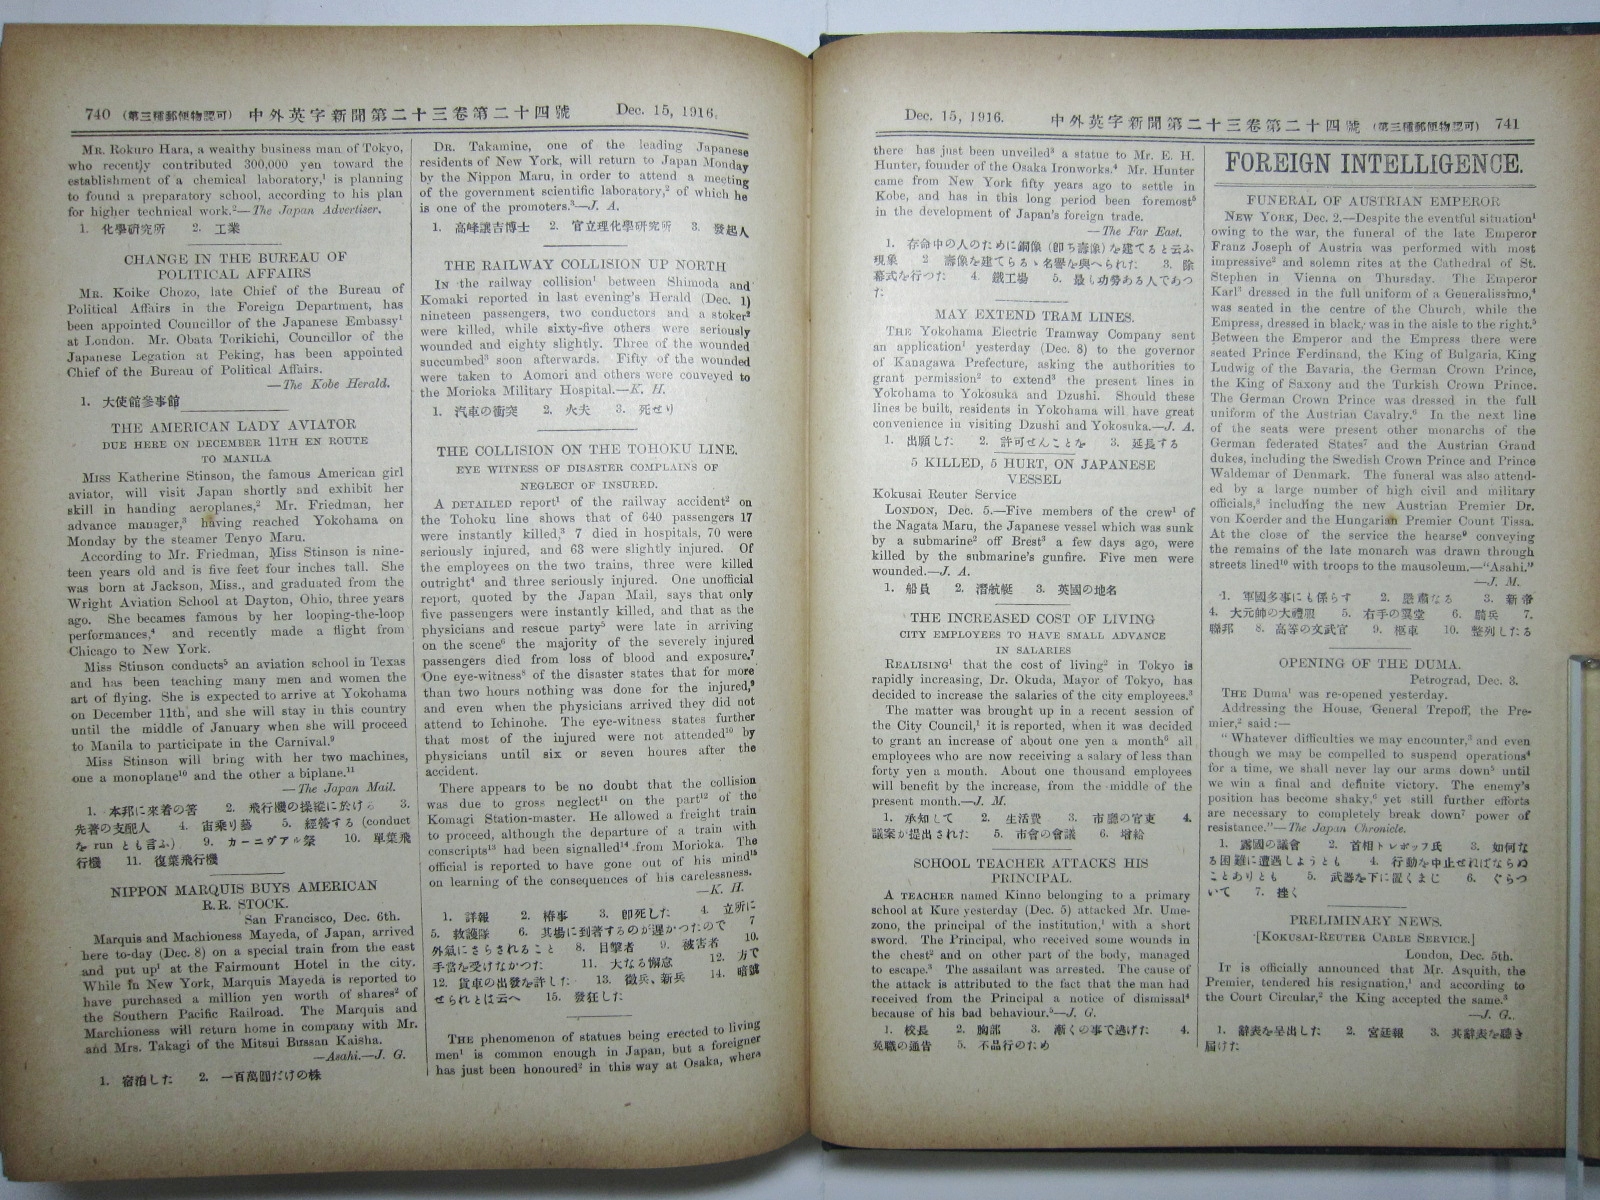 740 (第三種郵便物認可) 中外英字新聞第二十三卷第二十四號 Dec. 15, 1916.
MR. Rokuro Hara, a wealthy business man of Tokyo,
who recently contributed 300,000 yen toward the
establishment of a chemical laboratory,¹ is planning
to found a preparatory school, according to his plan
for higher technical work.²—The Japan Advertiser.
1. 化學硏究所 2. 工業
CHANGE IN THE BUREAU OF
POLITICAL AFFAIRS
MR. Koike Chozo, late Chief of the Bureau of
Political Affairs in the Foreign Department, has
been appointed Councillor of the Japanese Embassy¹
at London. Mr. Obata Torikichi, Councillor of the
Japanese Legation at Peking, has been appointed
Chief of the Bureau of Political Affairs.
—The Kobe Herald.
1. 大使館參事館
THE AMERICAN LADY AVIATOR
DUE HERE ON DECEMBER 11TH EN ROUTE
TO MANILA
MISS Katherine Stinson, the famous American girl
aviator, will visit Japan shortly and exhibit her
skill in handing aeroplanes,² Mr. Friedman, her
advance manager,³ having reached Yokohama on
Monday by the steamer Tenyo Maru.
According to Mr. Friedman, Miss Stinson is nine-
teen years old and is five feet four inches tall. She
was born at Jackson, Miss., and graduated from the
Wright Aviation School at Dayton, Ohio, three years
ago. She becames famous by her looping-the-loop
performances,⁴ and recently made a flight from
Chicago to New York.
Miss Stinson conducts⁵ an aviation school in Texas
and has been teaching many men and women the
art of flying. She is expected to arrive at Yokohama
on December 11th, and she will stay in this country
until the middle of January when she will proceed
to Manila to participate in the Carnival.⁹
Miss Stinson will bring with her two machines,
one a monoplane¹⁰ and the other a biplane.¹¹
—The Japan Mail.
1. 本邦に來着の筈 2. 飛行機の操縱に於ける 3.
先著の支配人 4. 宙乗り藝 5. 經營する (conduct
を run とも言ふ) 9. カーニヴアル祭 10. 單葉飛
行機 11. 復葉飛行機
NIPPON MARQUIS BUYS AMERICAN
R.R. STOCK.
San Francisco, Dec. 6th.
Marquis and Machioness Mayeda, of Japan, arrived
here to-day (Dec. 8) on a special train from the east
and put up¹ at the Fairmount Hotel in the city.
While in New York, Marquis Mayeda is reported to
have purchased a million yen worth of shares² of
the Southern Pacific Railroad. The Marquis and
Marchioness will return home in company with Mr.
and Mrs. Takagi of the Mitsui Bussan Kaisha.
—Asahi.—J. G.
1. 宿泊した 2. 一百萬圓だけの株
DR. Takamine, one of the leading Japanese
residents of New York, will return to Japan Monday
by the Nippon Maru, in order to attend a meeting
of the government scientific laboratory,² of which he
is one of the promoters.³—J. A.
1. 高峰讓吉博士 2. 官立理化學硏究所 3. 發起人
THE RAILWAY COLLISION UP NORTH
IN the railway collision¹ between Shimoda and
Komaki reported in last evening's Herald (Dec. 1)
nineteen passengers, two conductors and a stoker²
were killed, while sixty-five others were seriously
wounded and eighty slightly. Three of the wounded
succumbed³ soon afterwards. Fifty of the wounded
were taken to Aomori and others were conveyed to
the Morioka Military Hospital.—K. H.
1. 汽車の衝突 2. 火夫 3. 死せり
THE COLLISION ON THE TOHOKU LINE.
EYE WITNESS OF DISASTER COMPLAINS OF
NEGLECT OF INSURED.
A DETAILED report¹ of the railway accident² on
the Tohoku line shows that of 640 passengers 17
were instantly killed,³ 7 died in hospitals, 70 were
seriously injured, and 63 were slightly injured. Of
the employes on the two trains, three were killed
outright⁴ and three seriously injured. One unofficial
report, quoted by the Japan Mail, says that only
five passengers were instantly killed, and that as the
physicians and rescue party⁵ were late in arriving
on the scene⁶ the majority of the severely injured
passengers died from loss of blood and exposure.⁷
One eye-witness⁸ of the disaster states that for more
than two hours nothing was done for the injured,⁹
and even when the physicians arrived they did not
attend to Ichinohe. The eye-witness states further
that most of the injured were not attended¹⁰ by
physicians until six or seven houres after the
accident.
There appears to be no doubt that the collision
was due to gross neglect¹¹ on the part¹² of the
Komagi Station-master. He allowed a freight train
to proceed, although the departure of a train with
conscripts¹³ had been signalled¹⁴ from Morioka. The
official is reported to have gone out of his mind¹⁵
on learning of the consequences of his carelessness.
—K. H.
1. 詳報 2. 椿事 3. 卽死した 4. 立所に
5. 救護隊 6. 其場に到著するのが遲かつたので 7
外氣にさらされること 8. 目擊者 9. 被害者 10.
手當を受けなかつた 11. 大なる懈怠 12. 方で
12. 貨車の出發を許した 13. 徵兵、新兵 14. 暗號
せられとは云へ 15. 發狂した
THE phenomenon of statues being erected to living
men¹ is common enough in Japan, but a foreigner
has just been honoured² in this way at Osaka, where
Dec. 15, 1916. 中外英字新聞第二十三卷第二十四號 (第三種郵便物認可) 741
there has just been unveiled³ a statue to Mr. E. H.
Hunter, founder of the Osaka Ironworks.⁴ Mr. Hunter
came from New York fifty years ago to settle in
Kobe, and has in this long period been foremost⁵
in the development of Japan's foreign trade.
—The Far East.
1. 存命中の人のために銅像 (卽ち壽像) を建てると云ふ
現象 2 壽像を建てらるゝ名譽を與へられた 3. 除
幕式を行つた 4. 鐵工場 5. 最も功勞ある人であつ
た
MAY EXTEND TRAM LINES.
THE Yokohama Electric Tramway Company sent
an application¹ yesterday (Dec. 8) to the governor
of Kanagawa Prefecture, asking the authorities to
grant permission² to extend³ the present lines in
Yokohama to Yokosuka and Dzushi. Should these
lines be built, residents in Yokohama will have great
convenience in visiting Dzushi and Yokosuka.—J. A.
1. 出願した 2. 許可せんことを 3. 延長する
5 KILLED, 5 HURT, ON JAPANESE
VESSEL
Kokusai Reuter Service
LONDON, Dec. 5.—Five members of the crew¹ of
the Nagata Maru, the Japanese vessel which was sunk
by a submarine² off Brest³ a few days ago, were
killed by the submarine's gunfire. Five men were
wounded.—J. A.
1. 船員 2. 潛航艇 3. 英國の地名
THE INCREASED COST OF LIVING
CITY EMPLOYEES TO HAVE SMALL ADVANCE
IN SALARIES
REALISING¹ that the cost of living² in Tokyo is
rapidly increasing, Dr. Okuda, Mayor of Tokyo, has
decided to increase the salaries of the city employees.³
The matter was brought up in a recent session of
the City Council,¹ it is reported, when it was decided
to grant an increase of about one yen a month⁶ all
employees who are now receiving a salary of less than
forty yen a month. About one thousand employees
will benefit by the increase, from the middle of the
present month.—J. M.
1. 承知して 2. 生活費 3. 市廳の官吏 4.
議案が提出された 5. 市會の會議 6. 增給
SCHOOL TEACHER ATTACKS HIS
PRINCIPAL.
A TEACHER named Kinno belonging to a primary
school at Kure yesterday (Dec. 5) attacked Mr. Ume-
zono, the principal of the institution,¹ with a short
sword. The Principal, who received some wounds in
the chest² and on other part of the body, managed
to escape.³ The assailant was arrested. The cause of
the attack is attributed to the fact that the man had
received from the Principal a notice of dismissal⁴
because of his bad behaviour.⁵—J. G.
1. 校長 2. 胸部 3. 漸くの事で逃げた 4.
免職の通告 5. 不品行のため
FOREIGN INTELLIGENCE.
FUNERAL OF AUSTRIAN EMPEROR
NEW YORK, Dec. 2.—Despite the eventful situation¹
owing to the war, the funeral of the late Emperor
Franz Joseph of Austria was performed with most
impressive² and solemn rites at the Cathedral of St.
Stephen in Vienna on Thursday. The Emperor
Karl³ dressed in the full uniform of a Generalissimo,⁴
was seated in the centre of the Church, while the
Empress, dressed in black, was in the aisle to the right.⁵
Between the Emperor and the Empress there were
seated Prince Ferdinand, the King of Bulgaria, King
Ludwig of the Bavaria, the German Crown Prince,
the King of Saxony and the Turkish Crown Prince.
The German Crown Prince was dressed in the full
uniform of the Austrian Cavalry.⁶ In the next line
of the seats were present other monarchs of the
German federated States⁷ and the Austrian Grand
dukes, including the Swedish Crown Prince and Prince
Waldemar of Denmark. The funeral was also attend-
ed by a large number of high civil and military
officials,⁸ including the new Austrian Premier Dr.
von Koerder and the Hungarian Premier Count Tissa.
At the close of the service the hearse⁹ conveying
the remains of the late monarch was drawn through
streets lined¹⁰ with troops to the mausoleum.—"Asahi."
—J. M.
1. 軍國多事にも係らす 2. 嚴肅なる 3. 新帝
4. 大元帥の大禮服 5. 右手の翼堂 6. 騎兵 7.
聯邦 8. 高等の文武官 9. 柩車 10. 整列したる
OPENING OF THE DUMA.
Petrograd, Dec. 3.
THE Duma¹ was re-opened yesterday.
Addressing the House, General Trepoff, the Pre-
mier,² said :—
"Whatever difficulties we may encounter,³ and even
though we may be compelled to suspend operations⁴
for a time, we shall never lay our arms down⁵ until
we win a final and definite victory. The enemy's
position has become shaky,⁶ yet still further efforts
are necessary to completely break down⁷ power of
resistance."—The Japan Chronicle.
1. 露國の議會 2. 首相トレポッフ氏 3. 如何な
る困難に遭遇しようとも 4. 行動を中止せればならぬ
ことありとも 5. 武器を下に置くまじ 6. ぐらつ
いて 7. 挫く
PRELIMINARY NEWS.
[KOKUSAI-REUTER CABLE SERVICE.]
London, Dec. 5th.
IT is officially announced that Mr. Asquith, the
Premier, tendered his resignation,¹ and according to
the Court Circular,² the King accepted the same.³
—J. G.
1. 辭表を呈出した 2. 宮廷報 3. 其辭表を聽き
屆けた